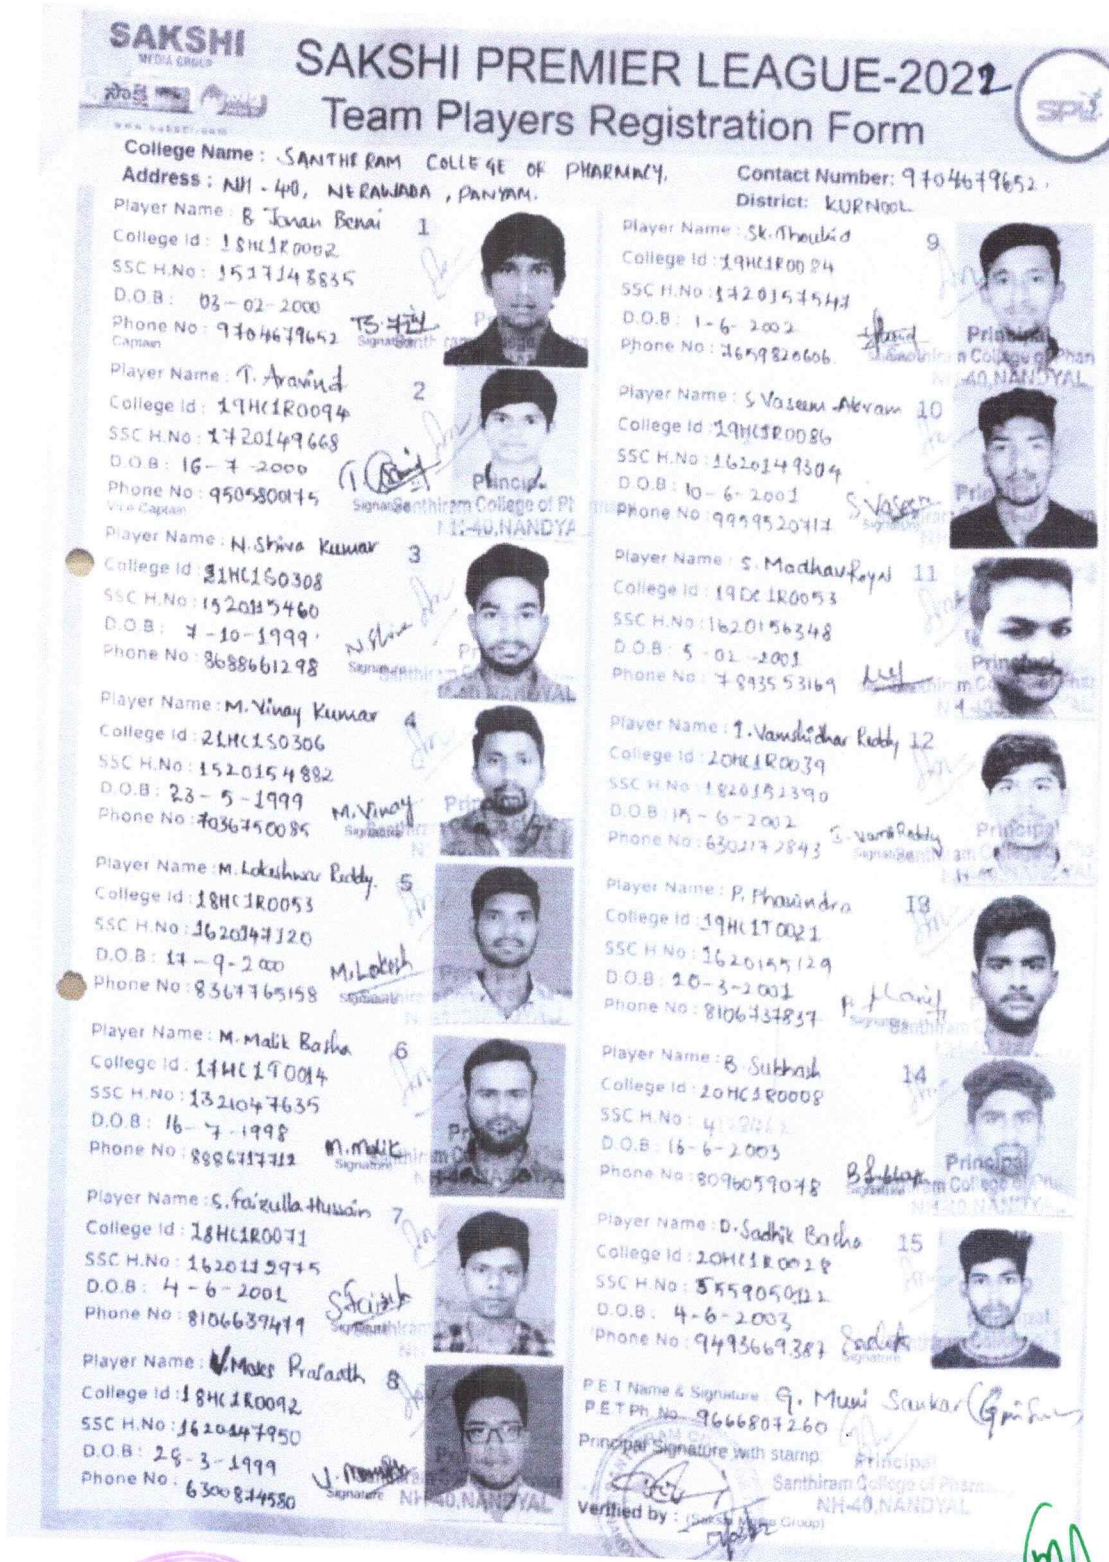 SAKSHI
MEDIA GROUP
సాక్షి
www.sakshi.com
SAKSHI PREMIER LEAGUE-2022
Team Players Registration Form
SPL
College Name : SANTHIRAM COLLEGE OF PHARMACY.
Address : NH-40, NERAWADA, PANYAM.
Contact Number: 9704679652.
District: KURNOOL
Player Name : B Jonan Benai 1
College Id : 18HC1R0002
SSC H.No : 1517148835
D.O.B : 03-02-2000
Phone No : 9704679652
Captain
Signature
Player Name : T. Aravind 2
College Id : 19HC1R0094
SSC H.No : 1720149668
D.O.B : 16-7-2000
Phone No : 9505800175
Vice Captain
Signature
Principal
Santhiram College of Phar
NH-40,NANDYA
Player Name : N. Shiva Kumar 3
College Id : 21HC1S0308
SSC H.No : 1520115460
D.O.B : 7-10-1999
Phone No : 8688661298
N.Shiva
Signature
Player Name : M. Vinay Kumar 4
College Id : 21HC1S0306
SSC H.No : 1520154882
D.O.B : 23-5-1999
Phone No : 7036750085
M.Vinay
Signature
Player Name : M. Lokeshwar Reddy. 5
College Id : 18HC1R0053
SSC H.No : 1620147120
D.O.B : 17-9-2000
Phone No : 8367765158
M.Lokesh
Signature
Player Name : M. Malik Basha 6
College Id : 17HC1T0014
SSC H.No : 1321047635
D.O.B : 16-7-1998
Phone No : 8886717712
M.Malik
Signature
Player Name : S. Faizulla Hussain 7
College Id : 18HC1R0071
SSC H.No : 1620112975
D.O.B : 4-6-2001
Phone No : 8106639479
Signature
Player Name : V. Moks Prasaath 8
College Id : 18HC1R0092
SSC H.No : 1620147950
D.O.B : 28-3-1999
Phone No : 6300874580
Signature
NH-40,NANDYAL
Player Name : Sk. Thouhid 9
College Id : 19HC1R0084
SSC H.No : 1720157547
D.O.B : 1-6-2002
Phone No : 7659820606.
Principal
College of Phar
NH-40,NANDYAL
Player Name : S Vaseem Akram 10
College Id : 19HC1R0086
SSC H.No : 1620149304
D.O.B : 10-6-2001
Phone No : 9959520717
S.Vaseem
Signature
Player Name : S. Madhav Royal 11
College Id : 19DC1R0053
SSC H.No : 1620156348
D.O.B : 5-02-2001
Phone No : 7893553169
Principal
Player Name : I. Vamshidhar Reddy 12
College Id : 20HC1R0039
SSC H.No : 1820152390
D.O.B : 15-6-2002
Phone No : 6302172843
Signature
Principal
Player Name : P. Phanindra 13
College Id : 19HC1T0021
SSC H.No : 1620155129
D.O.B : 20-3-2001
Phone No : 8106737837
Signature
Player Name : B. Subhash 14
College Id : 20HC1R0008
SSC H.No :
D.O.B : 16-6-2003
Phone No : 8096059078
Signature
Principal
Player Name : D. Sadhik Basha 15
College Id : 20HC1R0028
SSC H.No : 5559050122
D.O.B : 4-6-2003
Phone No : 9493669387
Sadhik
Signature
P.E.T Name & Signature : G. Muni Sankar
P.E.T Ph. No. 9666807260
Principal Signature with stamp
Principal
Santhiram College of Pharmacy
NH-40,NANDYAL
verified by : (Sakshi Media Group)